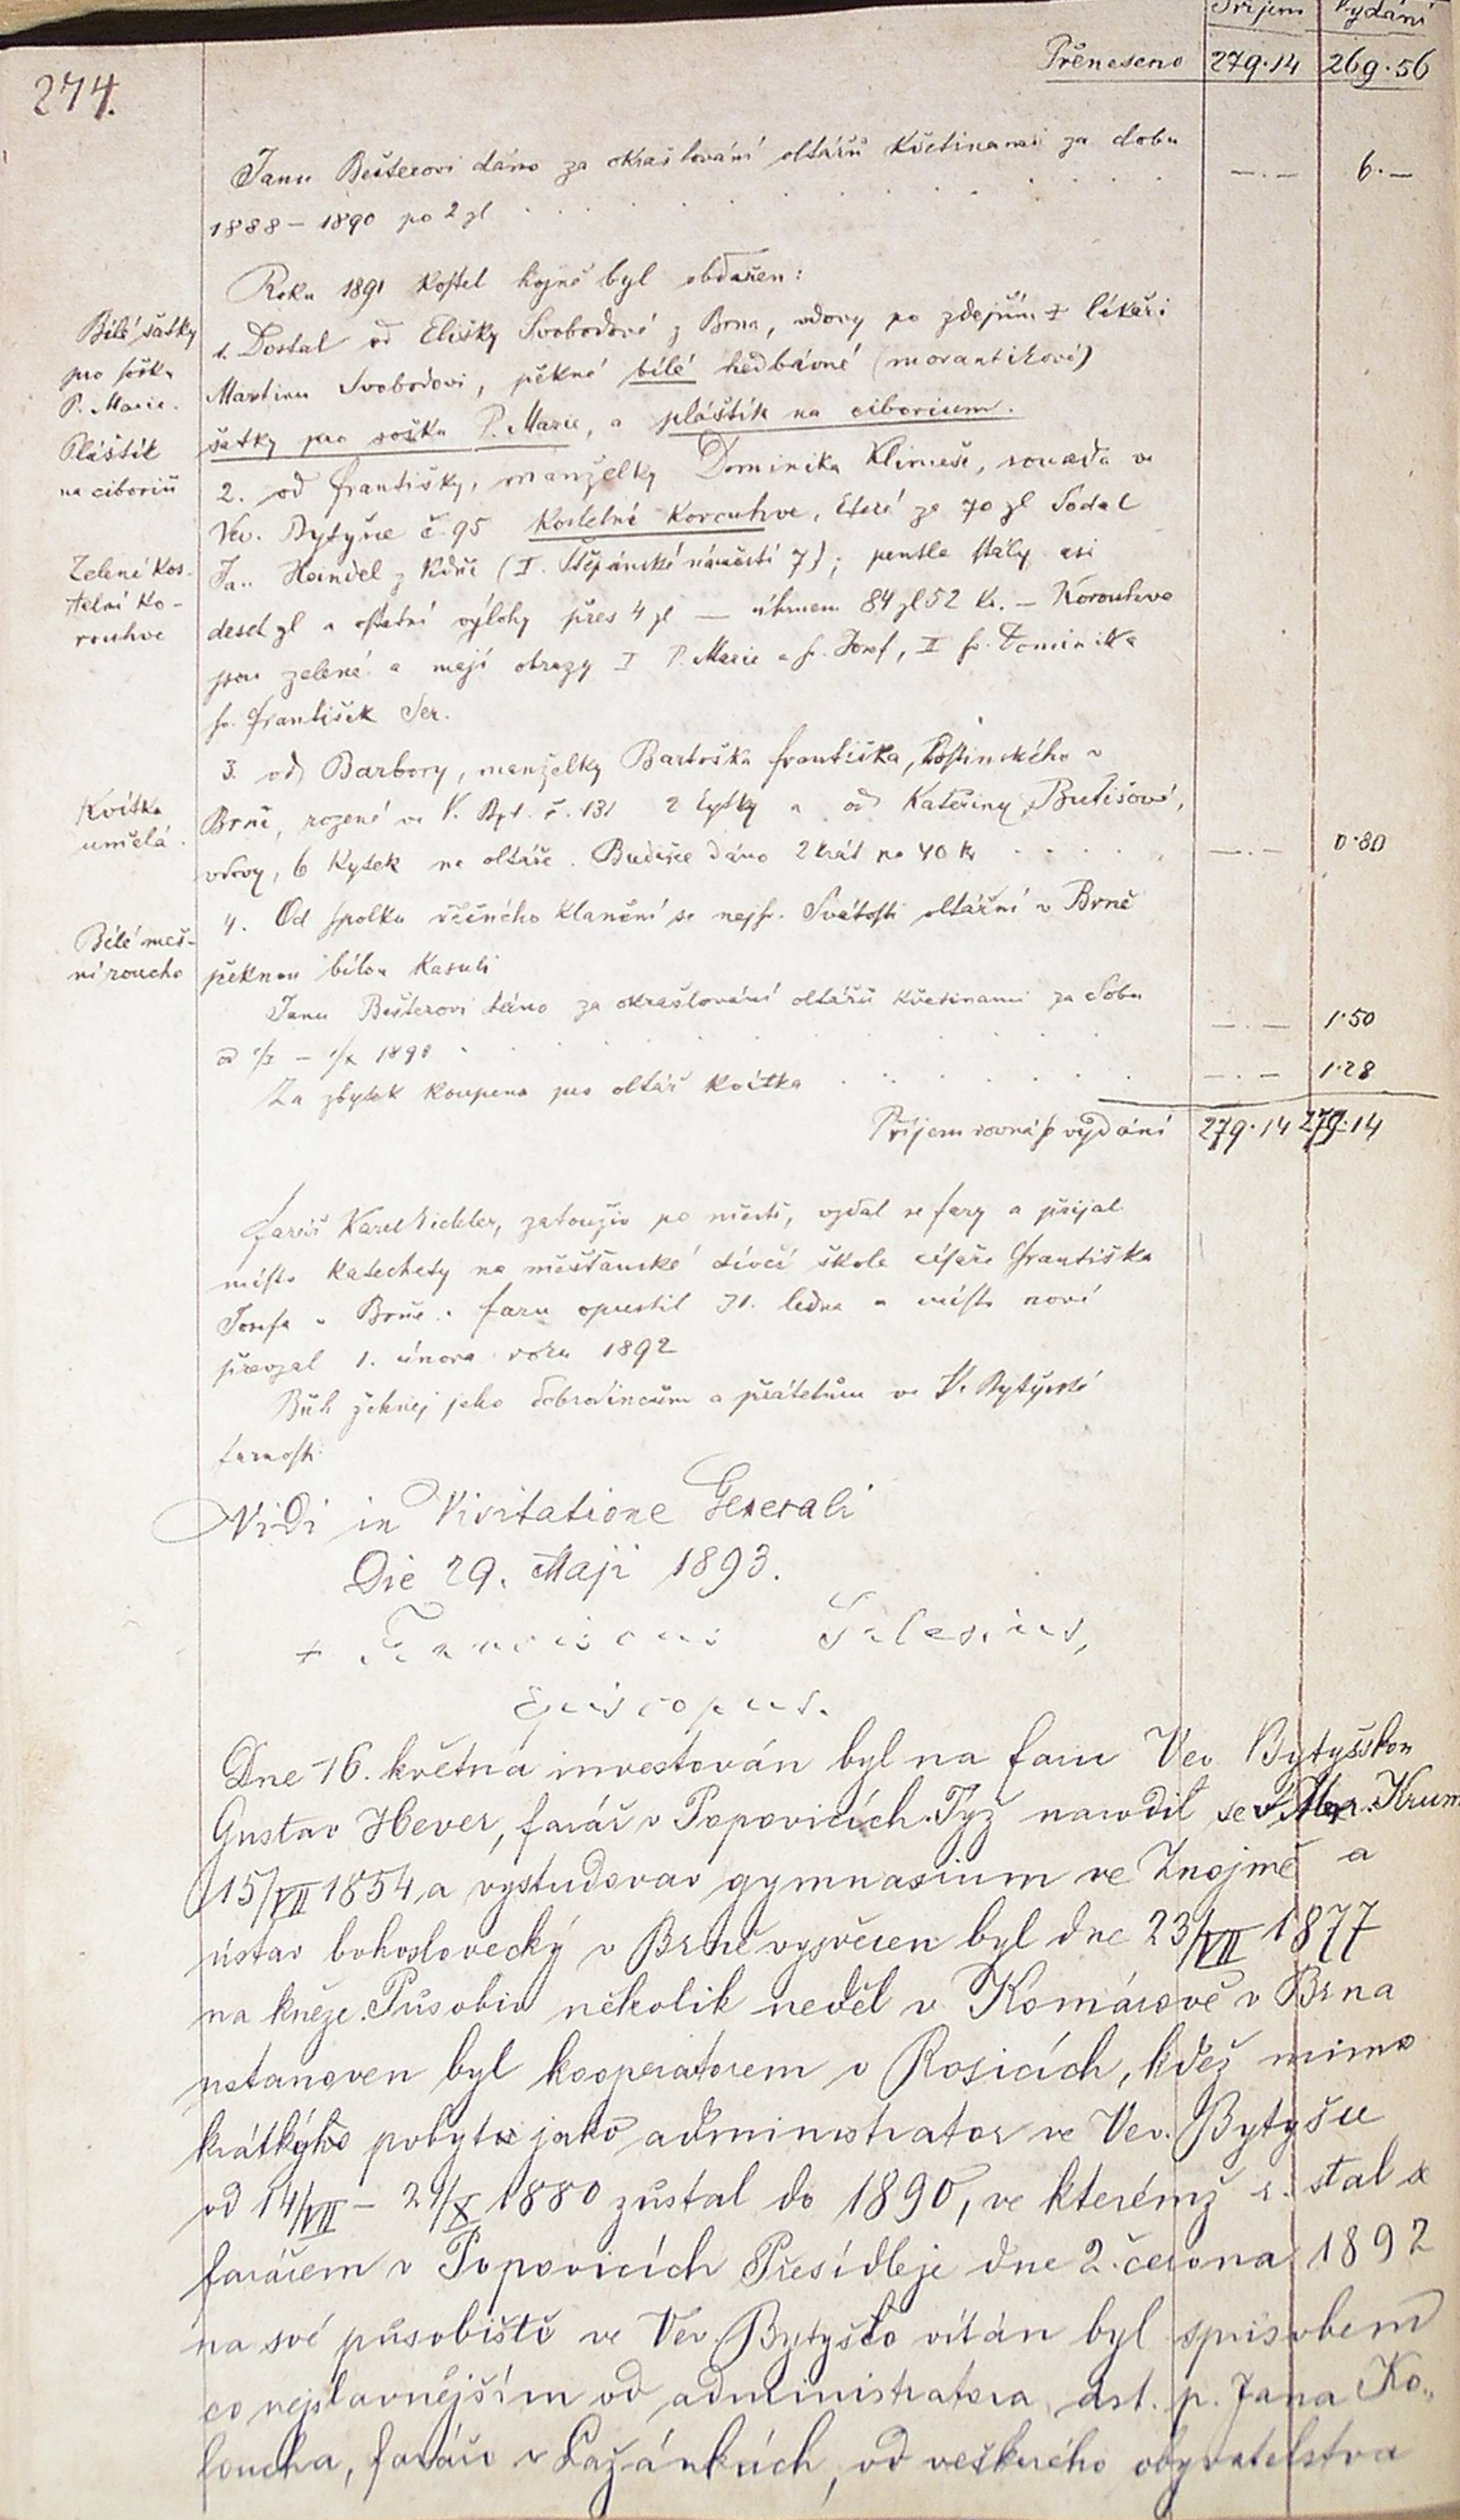 Příjem Vydání
274.
Přeneseno 279·14 269·56
Janu Bešterovi dáno za okrašlování oltářů květinami za dobu
1888 – 1890 po 2 zl —.— 6.—
Roku 1891 kostel hojně byl obdařen:
Bílé šátky
pro sošku
P. Marie.
1. Dostal od Elišky Svobodové z Brna, vdovy po zdejším † lékaři
Martinu Svobodovi, pěkné bílé hedbávné (morantikové)
šátky pro sošku P. Marie, a pláštík na ciborium.
Pláštík
na ciboriu
2. od Františky, manželky Dominika Klimeše, souseda ve
Vev. Bytyšce č. 95 kostelní korouhve, které za 70 zl dodal
Zelené kos-
telní ko-
rouhve
Jan Heindel z Vídně (I. Štěpánské náměstí 7); pentle stály asi
deset zl a ostatní výlohy přes 4 zl — úhrnem 84 zl 52 kr. – Korouhve
jsou zelené a mají obrazy I P. Marie a sv. Josef, II sv. Dominika
sv. František Ser.
3. od Barbory, manželky Bartoška Františka, hostinského v
Kvítka
umělá.
Brně, rozené ve V. Byt. č. 131 2 kytky a od Kateřiny Butišové,
vdovy, 6 kytek na oltáře. Budiře dáno 2 krát po 40 kr —.— 0·80
4. Od spolku věčného klanění se nejsv. Svátosti oltářní v Brně
Bílé meš-
ní roucho
pěknou bílou kasuli
Janu Bešterovi dáno za okrašlování oltářů květinami za dobu
—.— 1·50
Za zbytek koupena pro oltář kvítka —.— 1·28
Příjem rovná se vydání 279·14 279·14
Farář Karel Eichler, zatouživ po městě, vzdal se fary a přijal
místo katechety na měšťanské dívčí škole císaře Františka
Josefa v Brně. Faru opustil 31. ledna a místo nové
převzal 1. února roku 1892
Bůh žehnej jeho dobrodincům a přátelům ve V. Bytyšské
farnosti.
Vidi in Visitatione Generali
Die 29. Maji 1893.
+ Franciscus Salesius,
Episcopus.
Dne 16. května investován byl na faru Vev. Bytyšskou
Gustav Hever, farář v Popovicích. Týž narodil se v Mor. Krum
15/VII 1854, a vystudovav gymnasium ve Znojmě a
ústav bohoslovecký v Brně vysvěcen byl dne 23/VII 1877
na kněze. Působiv několik neděl v Komárově v Brna
ustanoven byl kooperatorem v Rosicích, kdež mimo
krátkého pobytu jako administrator ve Vev. Bytyšce
od 14/VII – 21/X 1880 zůstal do 1890, ve kterémž r. stal se
farářem v Popovicích Přesídleje dne 2. června 1892
na své působiště ve Vev. Bytyšco vítán byl spůsobem
co nejslavnějším od administratora, dst. p. Jana Ko„
loucha, faráře v Lažánkách, od veškerého obyvatelstva